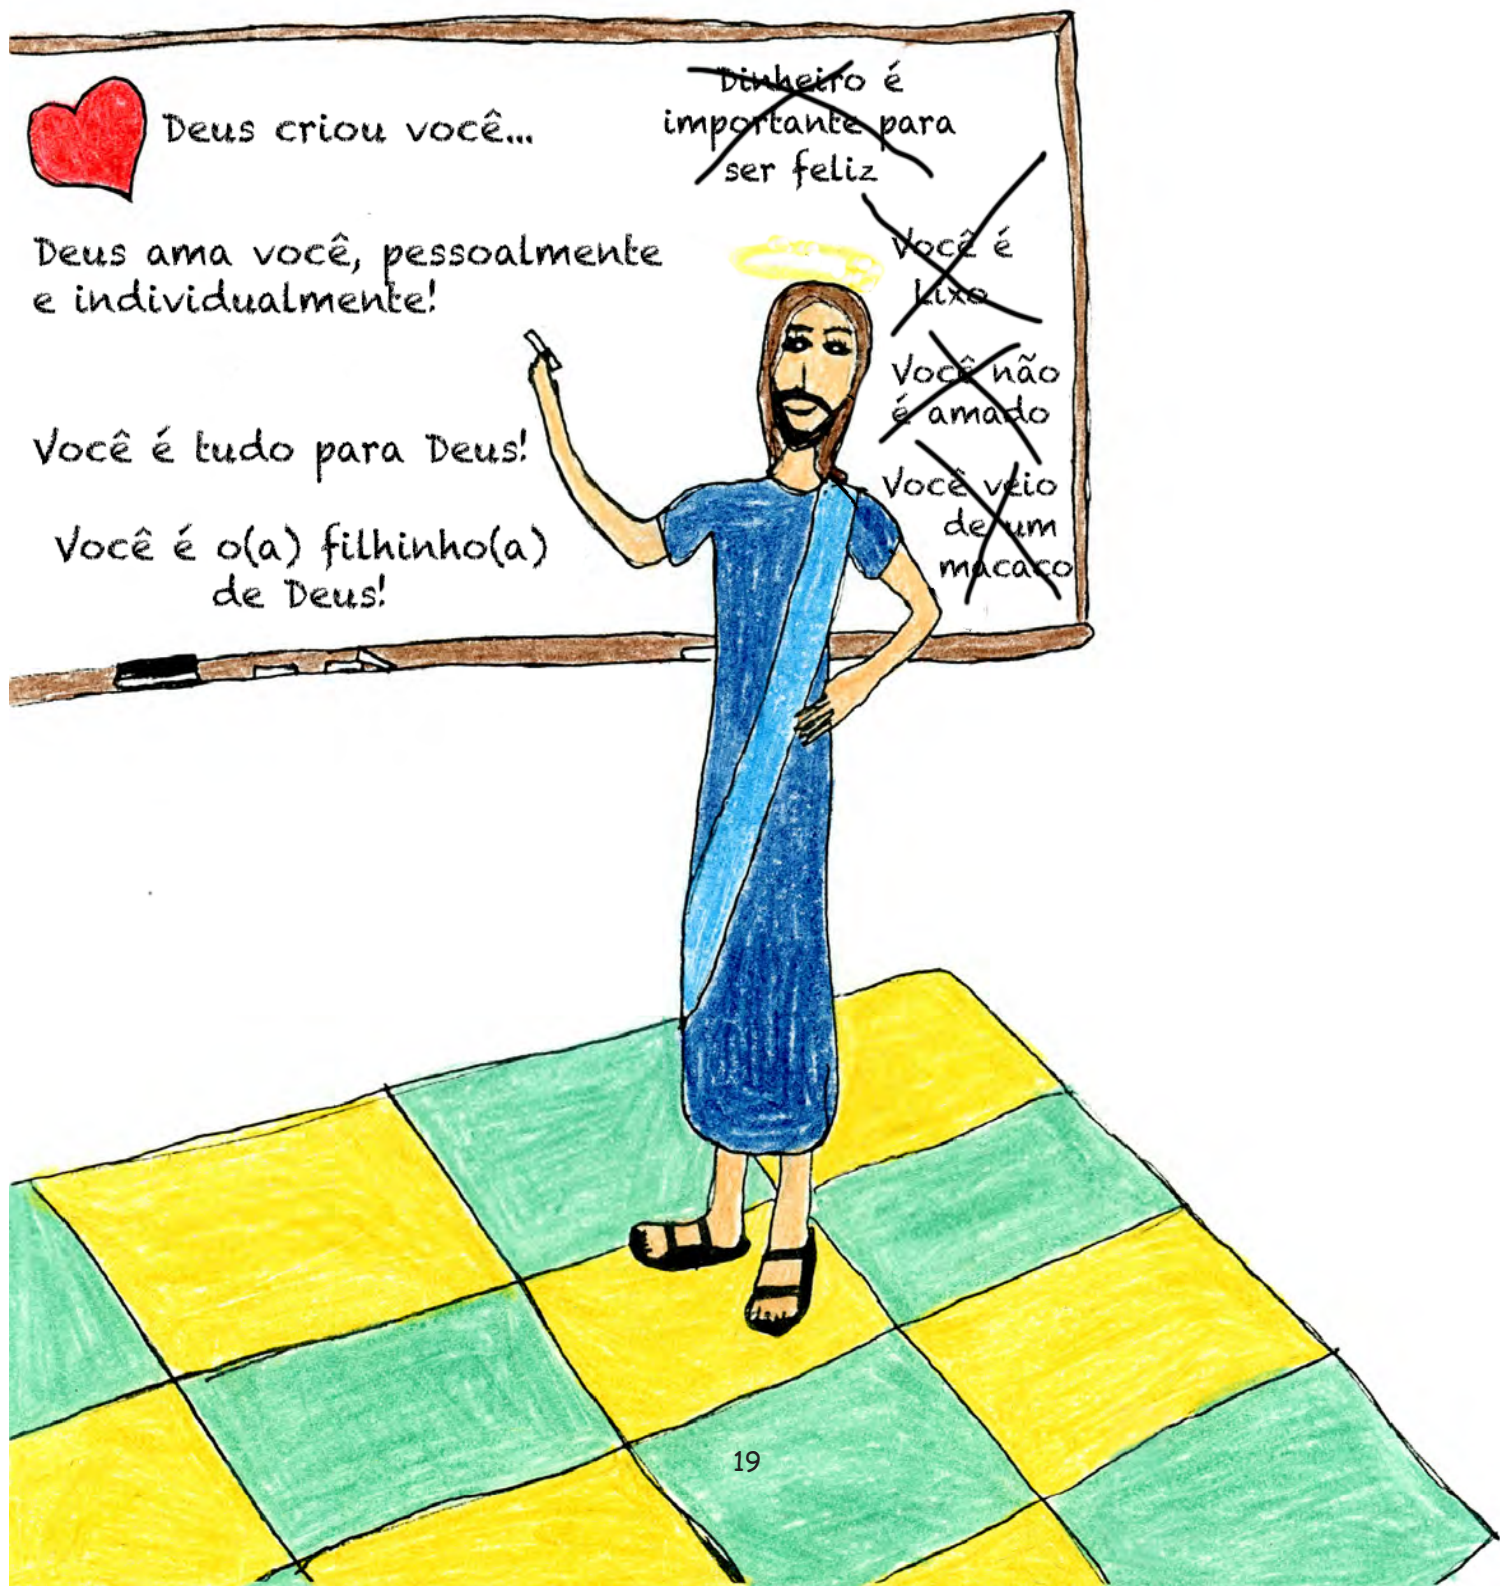 Deus criou você...
Deus ama você, pessoalmente
e individualmente!
Você é tudo para Deus!
Você é o(a) filhinho(a)
de Deus!
Dinheiro é
importante para
ser feliz
Você é
Lixo
Você não
é amado
Você veio
de um
macaco
19